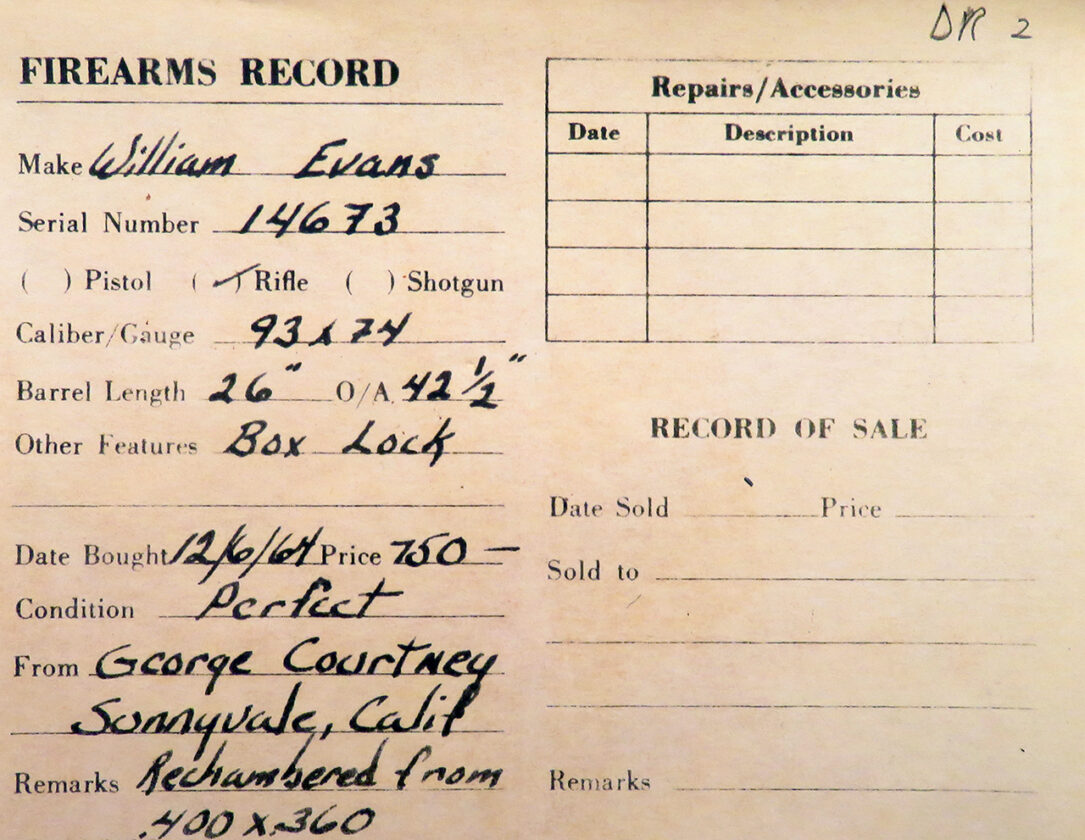 DR 2
FIREARMS RECORD
Make William Evans
Serial Number 14673
( ) Pistol (✓) Rifle ( ) Shotgun
Caliber/Gauge 93 x 74
Barrel Length 26" O/A 42 1/2"
Other Features Box Lock
Date Bought 12/6/64 Price 750 —
Condition Perfect
From George Courtney
Sunnyvale, Calif
Remarks Rechambered from
.400 x .360
Repairs/Accessories
Date Description Cost
RECORD OF SALE
Date Sold Price
Sold to
Remarks